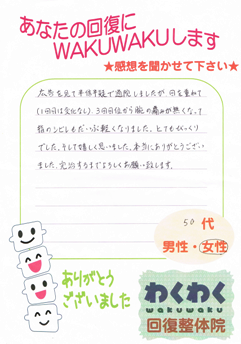 あなたの回復に
WAKUWAKUします
★感想を聞かせて下さい★
広告を見て半信半疑で通院しましたが、回を重ねて
(1回目は変化なし)、3回目位から腕の痛みが無くなって
指のシビレもだいぶ軽くなりました。とてもびっくり
でした。そして嬉しく思いました。本当にありがとうござい
ました。完治するまでよろしくお願い致します。
50代
男性・女性
ありがとう
ございました
わくわく
wakuwaku
回復整体院